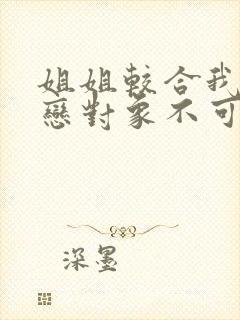 姐姐較合我
戀對象不可
深墨